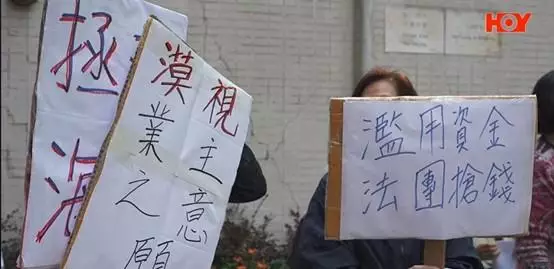 HOY
拯
漠視
業主
之意
願
濫用資金
法團搶錢